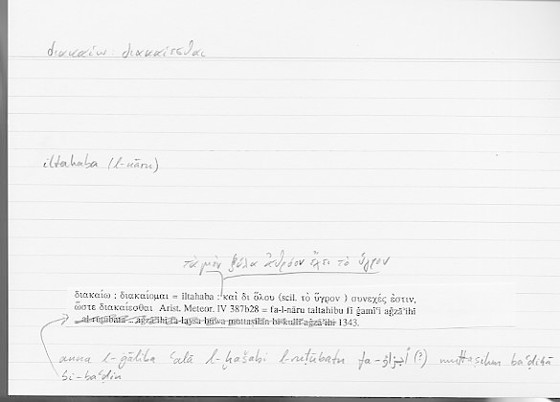 διακαίω : διακαίεσθαι
iltahaba (l-nāru)
τὰ μὲν ξύλα ἀθρόον ἔχει τὸ ὑγρόν
διακαίω ; διακαίομαι = iltahaba : καὶ δι ὅλου (scil. τὸ ὕγρον ) συνεχές ἐστιν,
ὥστε διακαίεσθαι Arist. Meteor. IV 387b28 = fa-l-nāru taltahibu fī ǧamīʿi aǧzāʾihi
al-ruṭūbata aǧzāʾihi fa-laysa huwa muttaṣilan bi-kulli aǧzāʾihi 1343.
anna l-ġāliba ʿalā l-ḫašabi l-ruṭūbatu fa- أجزاؤه (?) muttaṣilun baʿḍihā
bi-baʿḍin